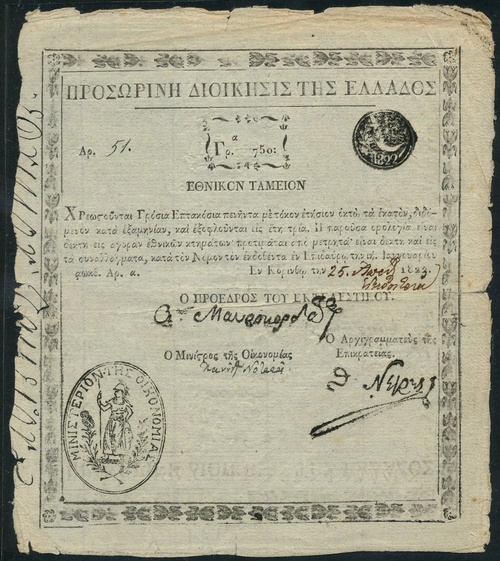 ΠΡΟΣΩΡΙΝΗ ΔΙΟΙΚΗΣΙΣ ΤΗΣ ΕΛΛΑΔΟΣ
Αρ. 51.
α
Γρ. 750:
1822
ΕΘΝΙΚΟΝ ΤΑΜΕΙΟΝ
Χρεωστοῦνται Γρόσια Επτακόσια πενῆντα μὲ τόκον ἐτήσιον ὀκτὼ τὰ ἑκατὸν, διδό-
μενον κατὰ ἑξαμηνίαν, καὶ ἐξοφλοῦνται εἰς ἔτη τρία. Η παροῦσα ὁμολογία εἶναι
δεκτὴ εἰς ἀγορὰν ἐθνικῶν κτημάτων προτιμᾶται ἀπὸ μετρητὰ εἶναι δεκτὴ καὶ εἰς
τὰ συναλλάγματα, κατὰ τὸν Νόμον τὸν ἐκδοθέντα ἐν Επιδαύρῳ, τὴν Ιαννουαρίου
αωκβ. Αρ. α. Εν Κορίνθῳ τὴν 25. 182
Ο ΠΡΟΕΔΡΟΣ ΤΟΥ ΕΚΤΕΛΕΣΤΙΚΟΥ.
Α. Μαυροκορδάτος
Ο Αρχιγραμματεὺς τῆς
Ο Μινίστρος τῆς Οικονομίας Επικρατείας.
Πανούτζος Νοταρᾶς
Θ. Νέγρης
ΜΙΝΙΣΤΕΡΙΟΝ ΤΗΣ ΟΙΚΟΝΟΜΙΑΣ